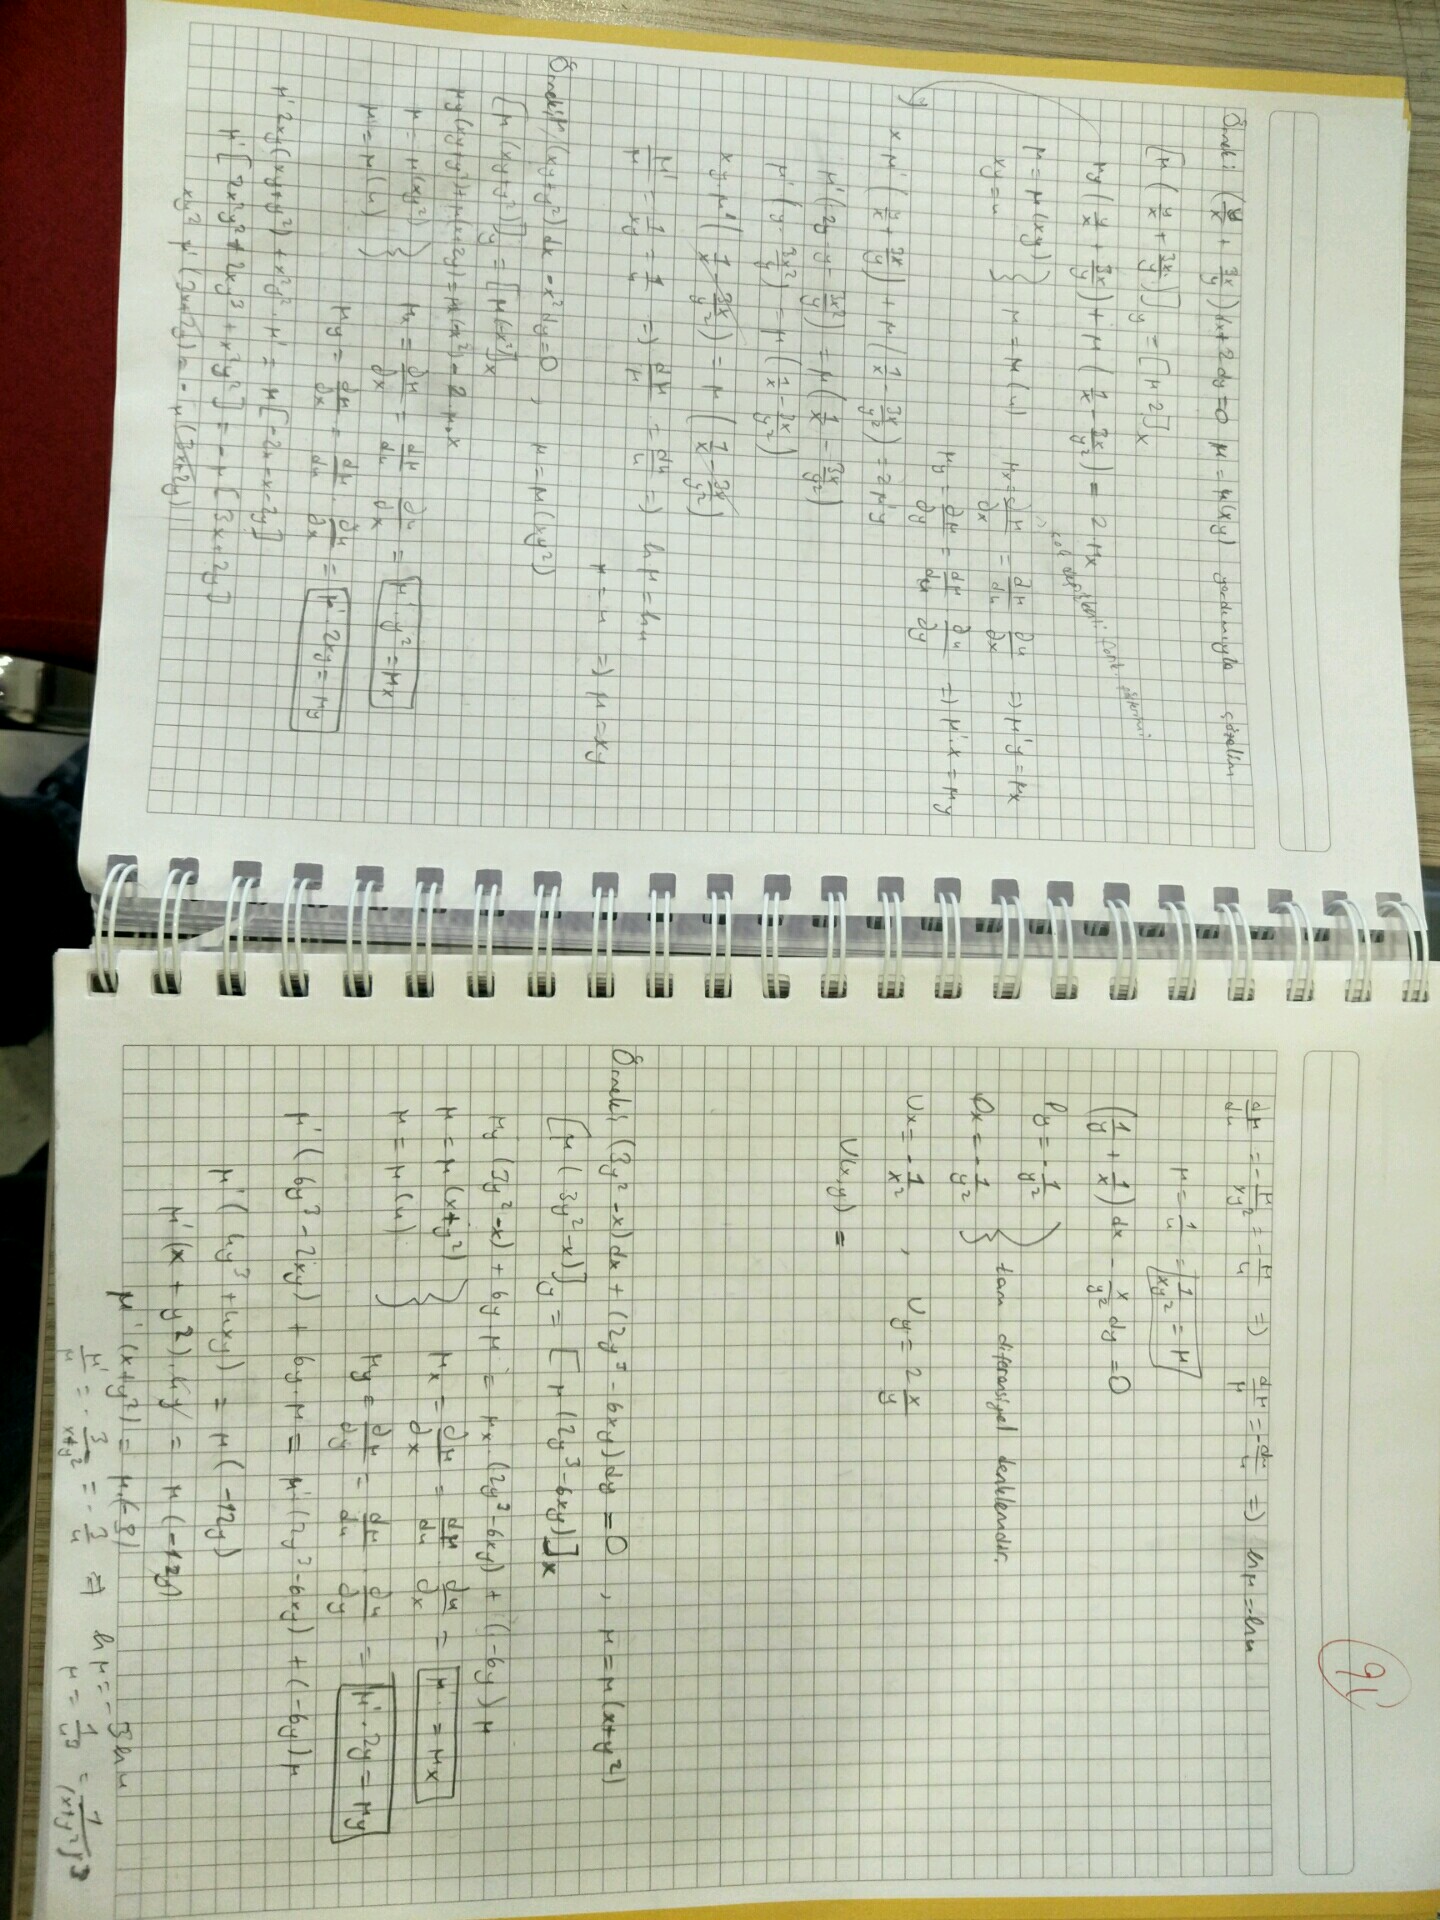 Örnek: (y/x + 3x/y) dx + 2 dy = 0 μ = μ(xy) yardımıyla çözelim
[μ (y/x + 3x/y)]_y = [μ 2]_x
μy (y/x + 3x/y) + μ (1/x - 3x/y²) = 2 · μx
çok değişkenli fonk.
μ = μ(xy)
xy = u
} μ = μ(u) μx = ∂μ/∂x = dμ/du ∂u/∂x => μ'y = μx
μy = ∂μ/∂y = dμ/du ∂u/∂y => μ'·x = μy
x · μ' (y/x + 3x/y) + μ (1/x - 3x/y²) = 2 μ'y
μ' (2y - y - 3x²/y) = μ (1/x - 3x/y²)
μ' (y - 3x²/y) = μ (1/x - 3x/y²)
xy · μ' (1/x - 3x/y²) = μ (1/x - 3x/y²)
μ'/μ = 1/xy = 1/u => dμ/μ = du/u => ln μ = ln u
μ = u => μ = xy
Örnek: (xy+y²) dx - x² dy = 0 , μ = μ(xy²)
[μ (xy+y²)]_y = [μ(-x²)]_x
μy (xy+y²) + μ(x+2y) = μx(-x²) - 2 · μ · x
μ = μ(xy²)
μ = μ(u)
} μx = ∂μ/∂x = dμ/du · ∂u/∂x = μ' · y² = μx
μy = dμ/∂x = dμ/du · ∂u/∂x = μ' · 2xy = μy
μ' 2xy(xy+y²) + x²y² · μ' = μ [-2x - x - 2y]
μ' [2x²y² + 2xy³ + x²y²] = -μ [3x+2y]
xy² μ' (3x+2y) = -μ (3x+2y)
91
dμ/du = -μ/xy² = -μ/u => dμ/μ = -du/u => ln μ = -ln u
μ = 1/u = 1/xy² = μ
(1/y + 1/x) dx - x/y² dy = 0
Py = -1/y²
Qx = -1/y²
} tam diferensiyel denklemdir.
Ux = -1/x² , Uy = 2 x/y
U(x,y) =
Örnek: (3y² - x) dx + (2y³ - 6xy) dy = 0 , μ = μ(x+y²)
[μ (3y² - x)]_y = [μ (2y³ - 6xy)]_x
μy (3y² - x) + 6y · μ = μx · (2y³ - 6xy) + (-6y) μ
μ = μ(x+y²)
μ = μ(u)
} μx = ∂μ/∂x = dμ/du · ∂u/∂x = μ' = μx
μy = ∂μ/∂y = dμ/du · ∂u/∂y = μ' · 2y = μy
μ' (6y³ - 2xy) + 6y · μ = μ' (2y³ - 6xy) + (-6y) μ
μ' (4y³ + 4xy) = μ (-12y)
μ' (x + y²) · 4y = μ (-12y)
μ' (x+y²) = μ · (-3)
μ'/μ = -3/x+y² = -3/u => ln μ = -3 ln u
μ = 1/u³ = 1/(x+y²)³